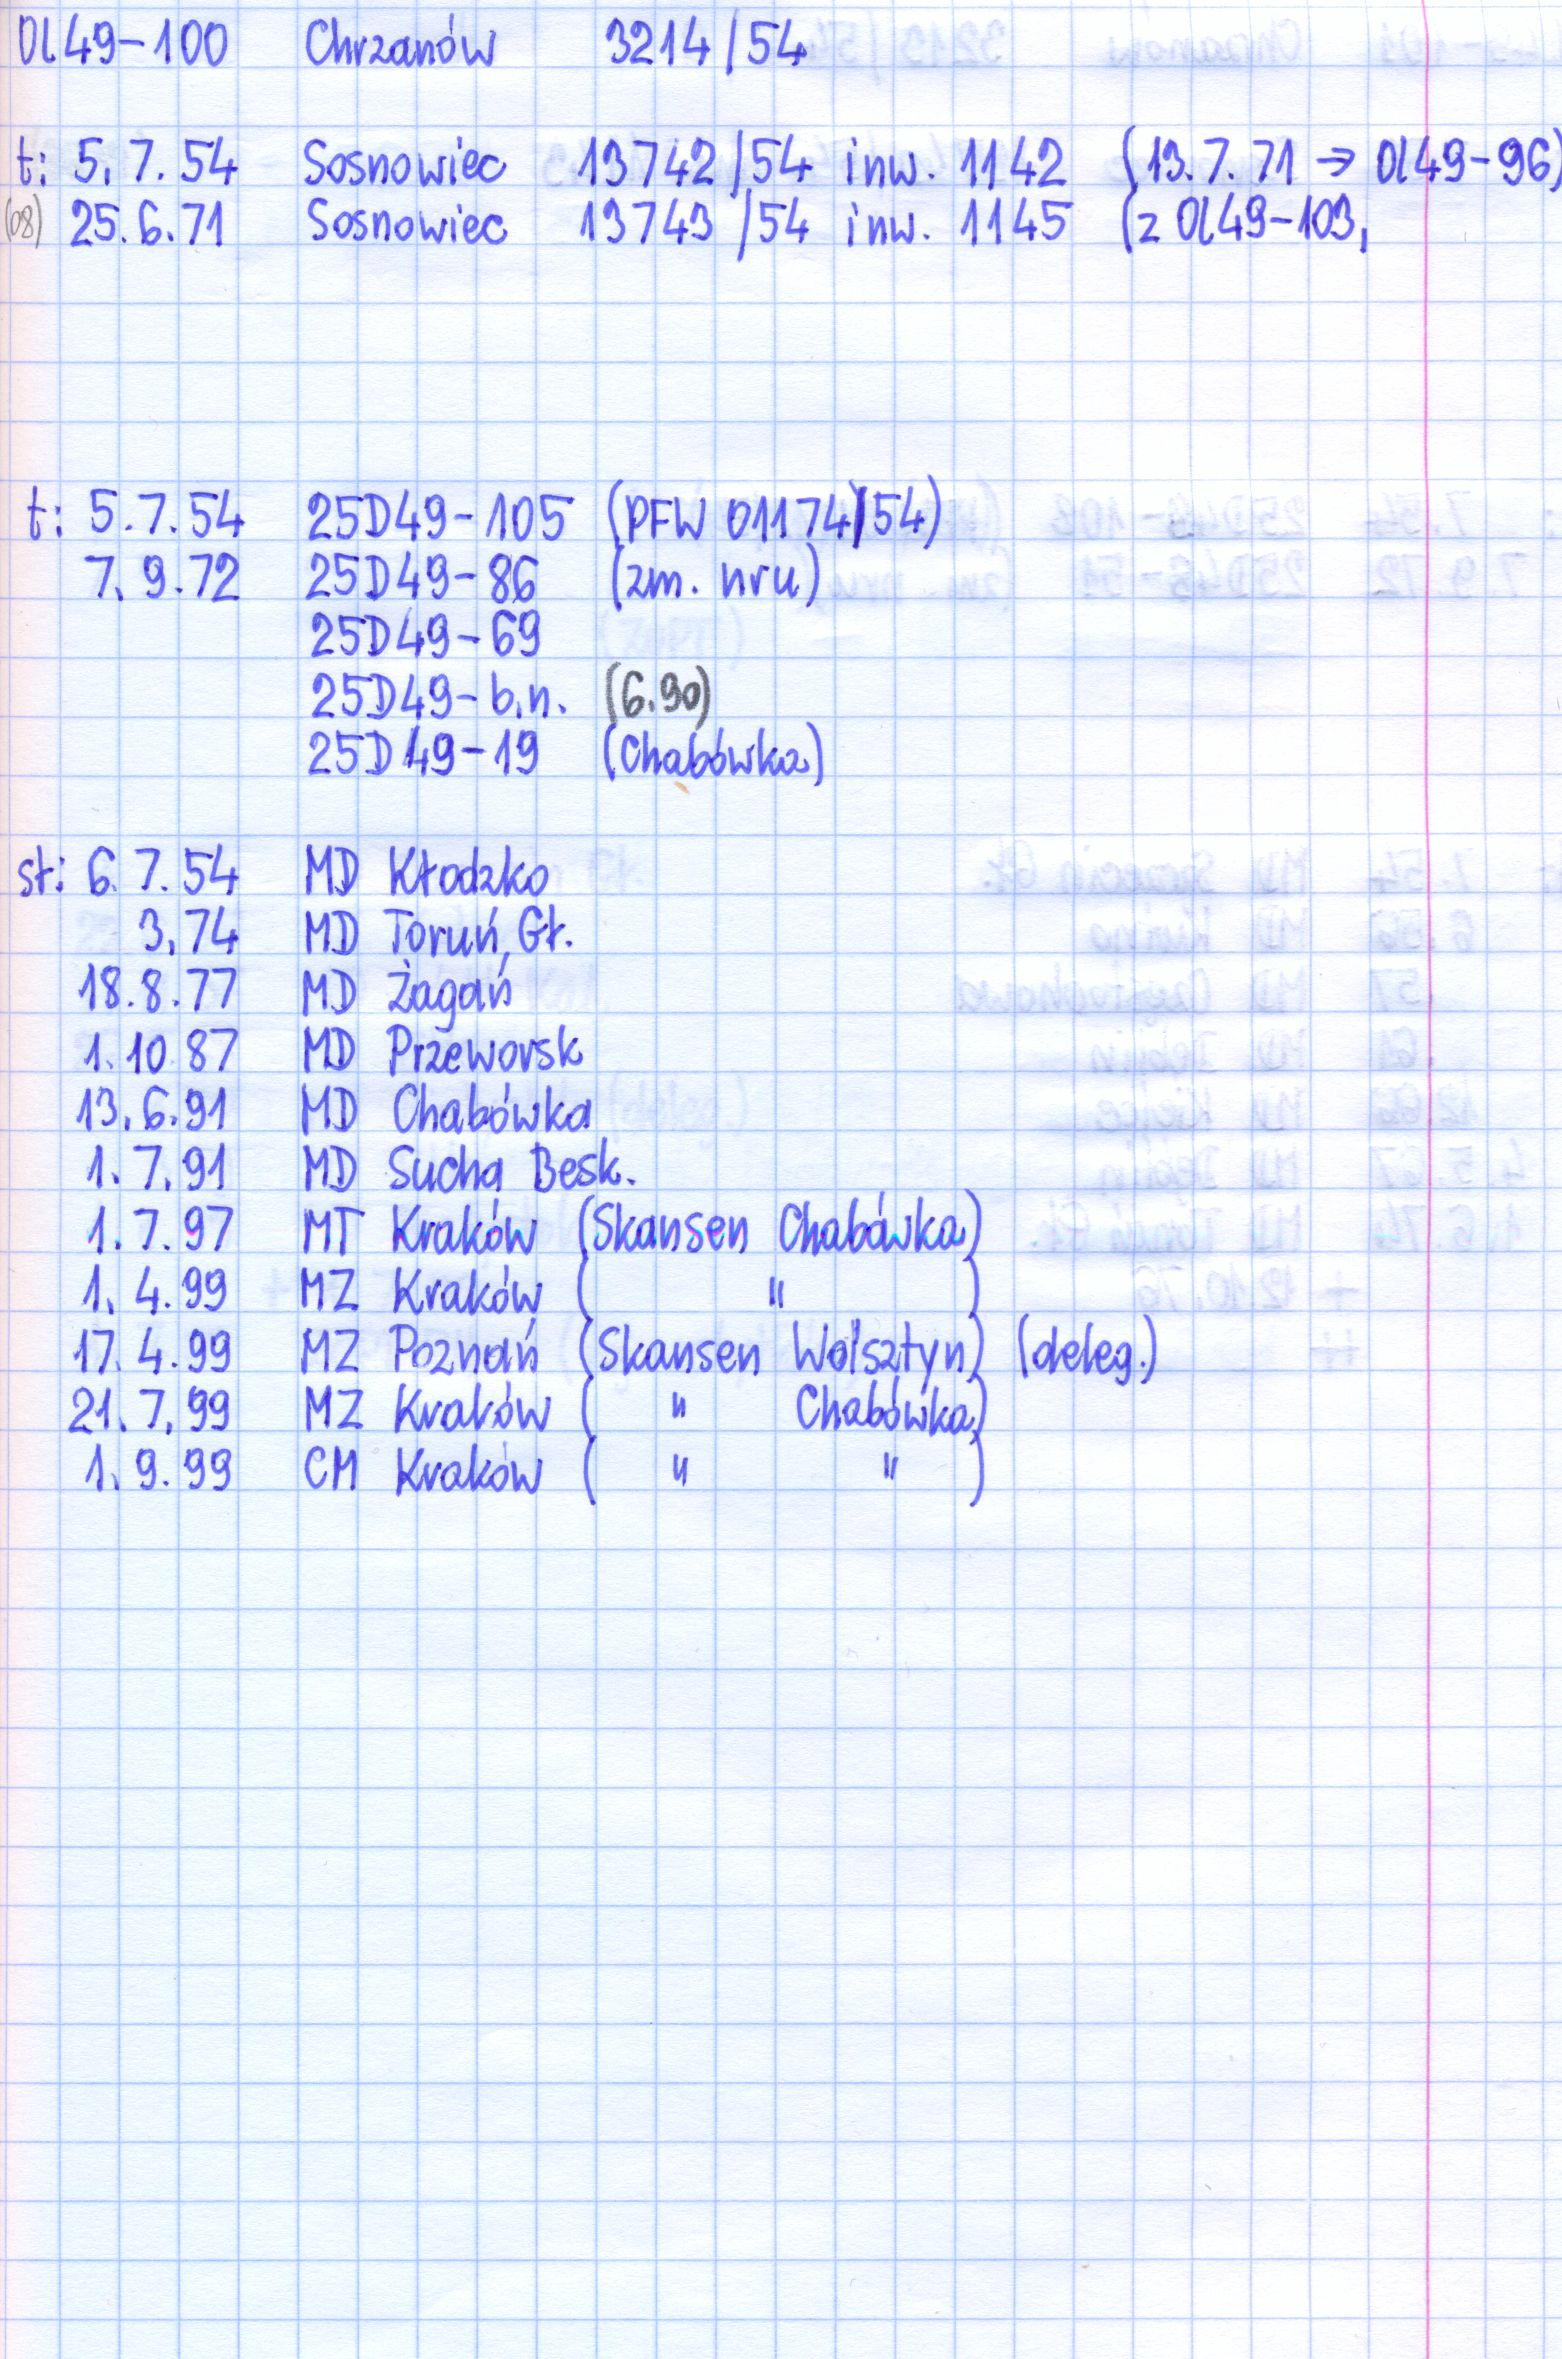 Ol49-100 Chrzanów 3214/54
t: 5.7.54 Sosnowiec 13742/54 inw. 1142 (13.7.71 → Ol49-96)
(08) 25.6.71 Sosnowiec 13743/54 inw. 1145 (z Ol49-103,
t: 5.7.54 25D49-105 (PFW 01174/54)
7.9.72 25D49-86 (zm. nru)
25D49-69
25D49-b.n. (6.90)
25D49-19 (Chabówka)
st: 6.7.54 MD Kłodzko
3.74 MD Toruń Gł.
18.8.77 MD Żagań
1.10.87 MD Przeworsk
13.6.91 MD Chabówka
1.7.91 MD Sucha Besk.
1.7.97 MT Kraków (Skansen Chabówka)
1.4.99 MZ Kraków ( " )
17.4.99 MZ Poznań (Skansen Wolsztyn) (deleg.)
21.7.99 MZ Kraków ( " Chabówka)
1.9.99 CM Kraków ( " " )